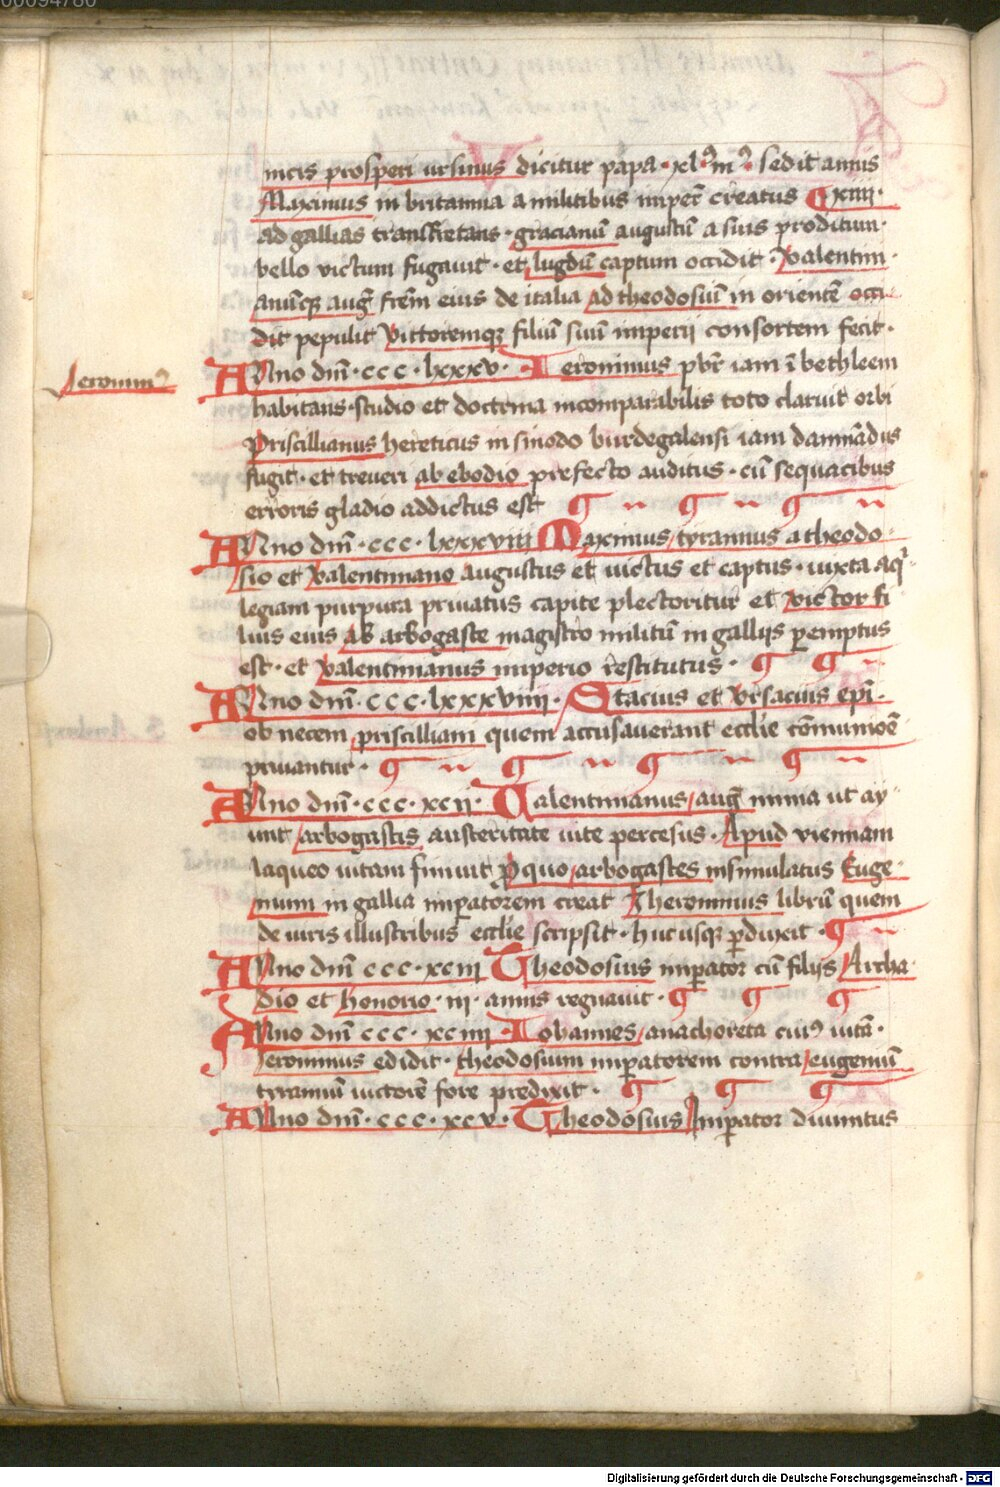 00094780
nicis prosperi ursinus dicitur papa · xlꝰ mꝰ · sedit annis
Maximus in britannia a militibus imper̄ creatus xiiii ·
ad gallias transfretans · gracianū augustū a suis proditum ·
bello victum fugavit · et lugdū captum occidit · Valentini
anūcq̨ aug̃ fr̄em eius de italia ad theodosiū in orientē occi
dit pepulit Victoremq̨ filiū suū imperii consortem fecit ·
Jeronimꝰ
Anno dm̄ · ccc · lxxxv · Ieronimus p̄br iam ī bethleem
habitans · studio et doctrina incomparabilis toto claruit orbi
Priscillianus hereticus in sinodo burdegalensi iam damnādus
fugit · et treveri ab ebodio prefecto auditus · cū sequacibus
erroris gladio addictus est
Anno dm̄ · ccc · lxxxviii Maximus tyrannus a theodo
sio et Valentiniano augustus et victus et captus · iuxta aq̓
legiam purpura privatus capite plectoritur et victor fi
lius eius ab arbogaste magistro militū in galliis p̱emptus
est · et Valentinianus imperio restitutus ·
Anno dm̄ · ccc · lxxxviiii · Stacius et Vrsacius ep̄i ·
ob necem priscilliani quem accusaverant ecclīe cōmunionē
privantur ·
Anno dm̄ · ccc · xcii · Valentinianus aug̃ nimia ut ay
unt arbogastis austeritate vite percesus · Apud viennam
laqueo vitam finivit p̱ quo arbogastes insimulatus Euge
nium in gallia imp̱atorem creat Iheronimus librū quem
de viris illustribus ecclīe scripsit · huc usq̨ p̱duxit ·
Anno dm̄ ccc · xciii Theodosius imp̱ator cū filiis Archa
dio et honorio · iii · annis regnavit ·
Anno dm̄ ccc · xciiii · Iohannes anachoreta cuiꝰ vitā ·
Jeronimus edidit · theodosium imp̱atorem contra eugeniū
tyrannū victorē fore predixit ·
Anno dm̄ · ccc · xcv · Theodosius Imp̱ator divinitus
Digitalisierung gefördert durch die Deutsche Forschungsgemeinschaft - DFG